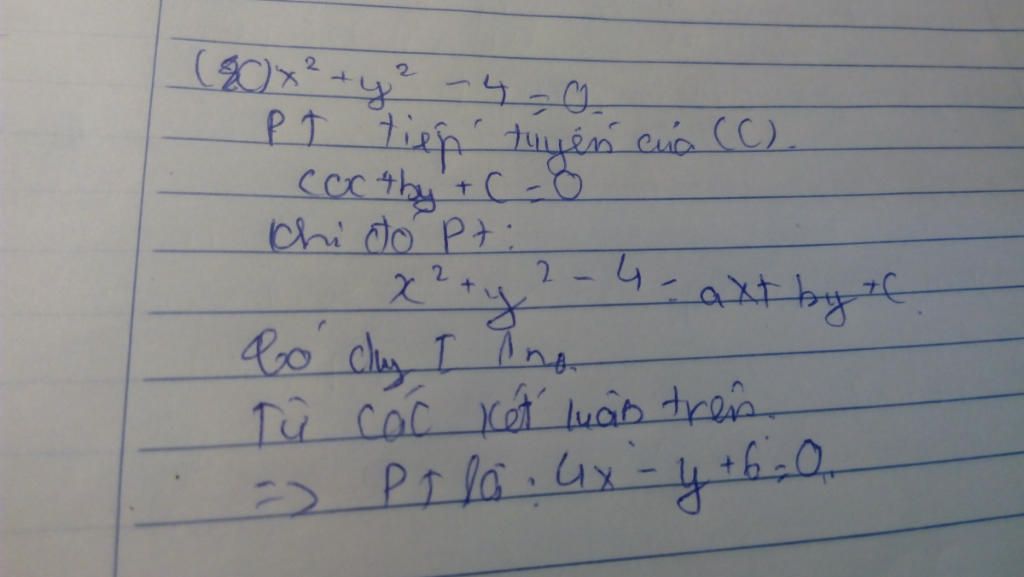 (C) x² + y² - 4 = 0.
PT tiếp tuyến của (C).
ax + by + c = 0
Khi đó Pt:
x² + y² - 4 = ax + by + c.
Có duy I
Từ các kết luận trên.
=> PT là: 4x - y + 6 = 0.